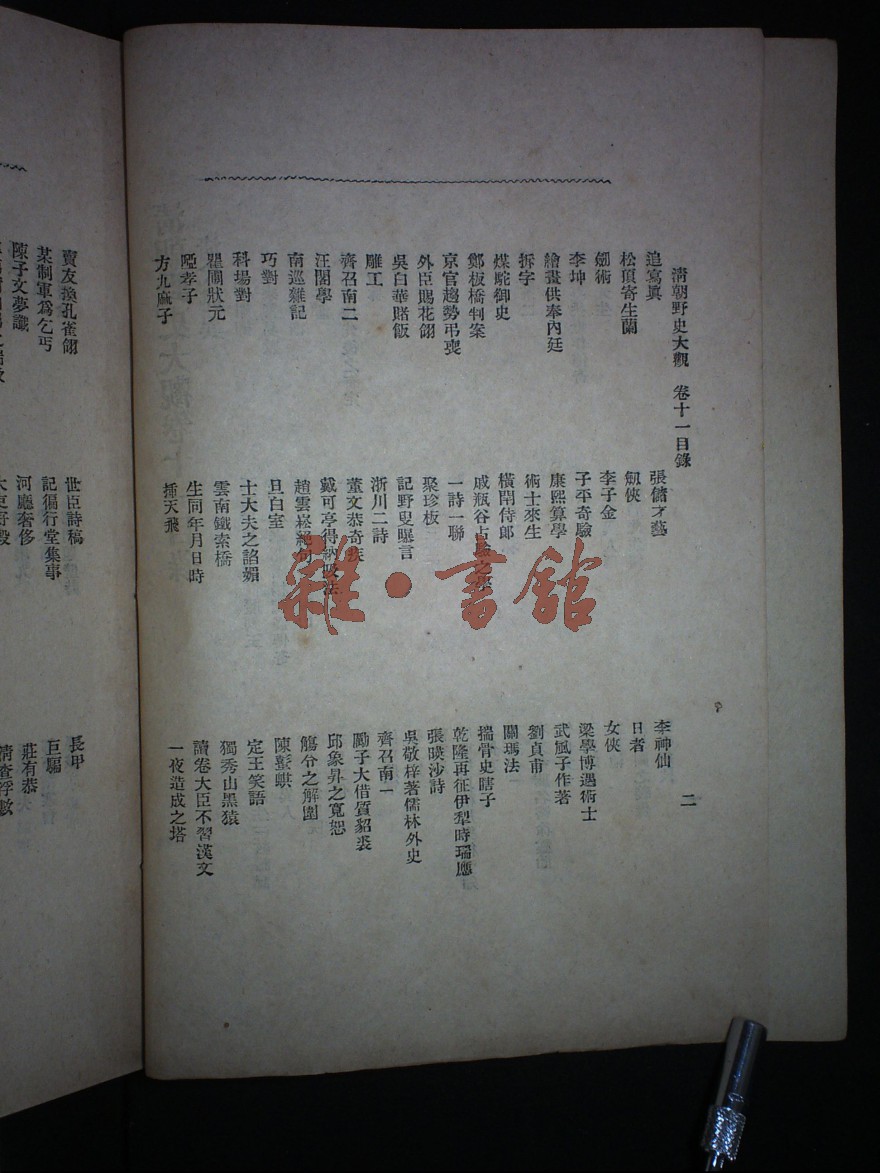 清朝野史大觀 卷十一目錄 二
追寫眞 張儲才藝 李神仙
松頂寄生蘭 劍俠 日者
劍術 李子金 女俠
李坤 子平奇驗 梁學博遇術士
繪畫供奉內廷 康熙算學 武風子作著
拆字 術士來生 劉貞甫
煤駝御史 侍郎 關瑪法
鄭板橋判案 戚瓶谷占驗之學 揣骨史瞎子
京官趨勢弔喪 一詩一聯 乾隆再征伊犁時瑞應
外臣賜花翎 聚珍板 張暎沙詩
吳白華賭飯 記野叟曝言 吳敬梓著儒林外史
雕工 浙川二詩 齊召南一
齊召南二 董文恭奇疾 勵子大借質貂裘
汪閣學 戴可亭得納吸法 邱象昇之寬恕
南巡雜記 趙雲崧絕句 觴令之解圍
巧對 旦白室 陳
科場對 士大夫之諂媚 定王笑語
狀元 雲南鐵索橋 獨秀山黑猿
啞孝子 生同年月日時 讀卷大臣不習漢文
方九麻子 插天飛 一夜造成之塔
賣友換孔雀翎 世臣詩稿 長甲
某制軍爲乞丐 記徧行堂集事 巨騙
陳子文夢讖 河廳奢侈 莊有恭
雜·書館